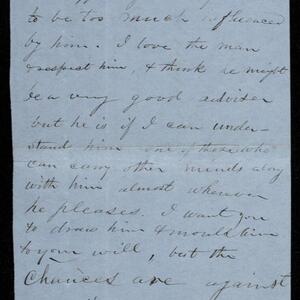 to be too much influenced
by him. I love the man
& respect him, & think he might
be a very good adviser
but he is if I can under-
stand him one of those who
can carry other minds along
with him almost wherever
he pleases. I want you
to draw him & mould him
to your will, but the
chances are against